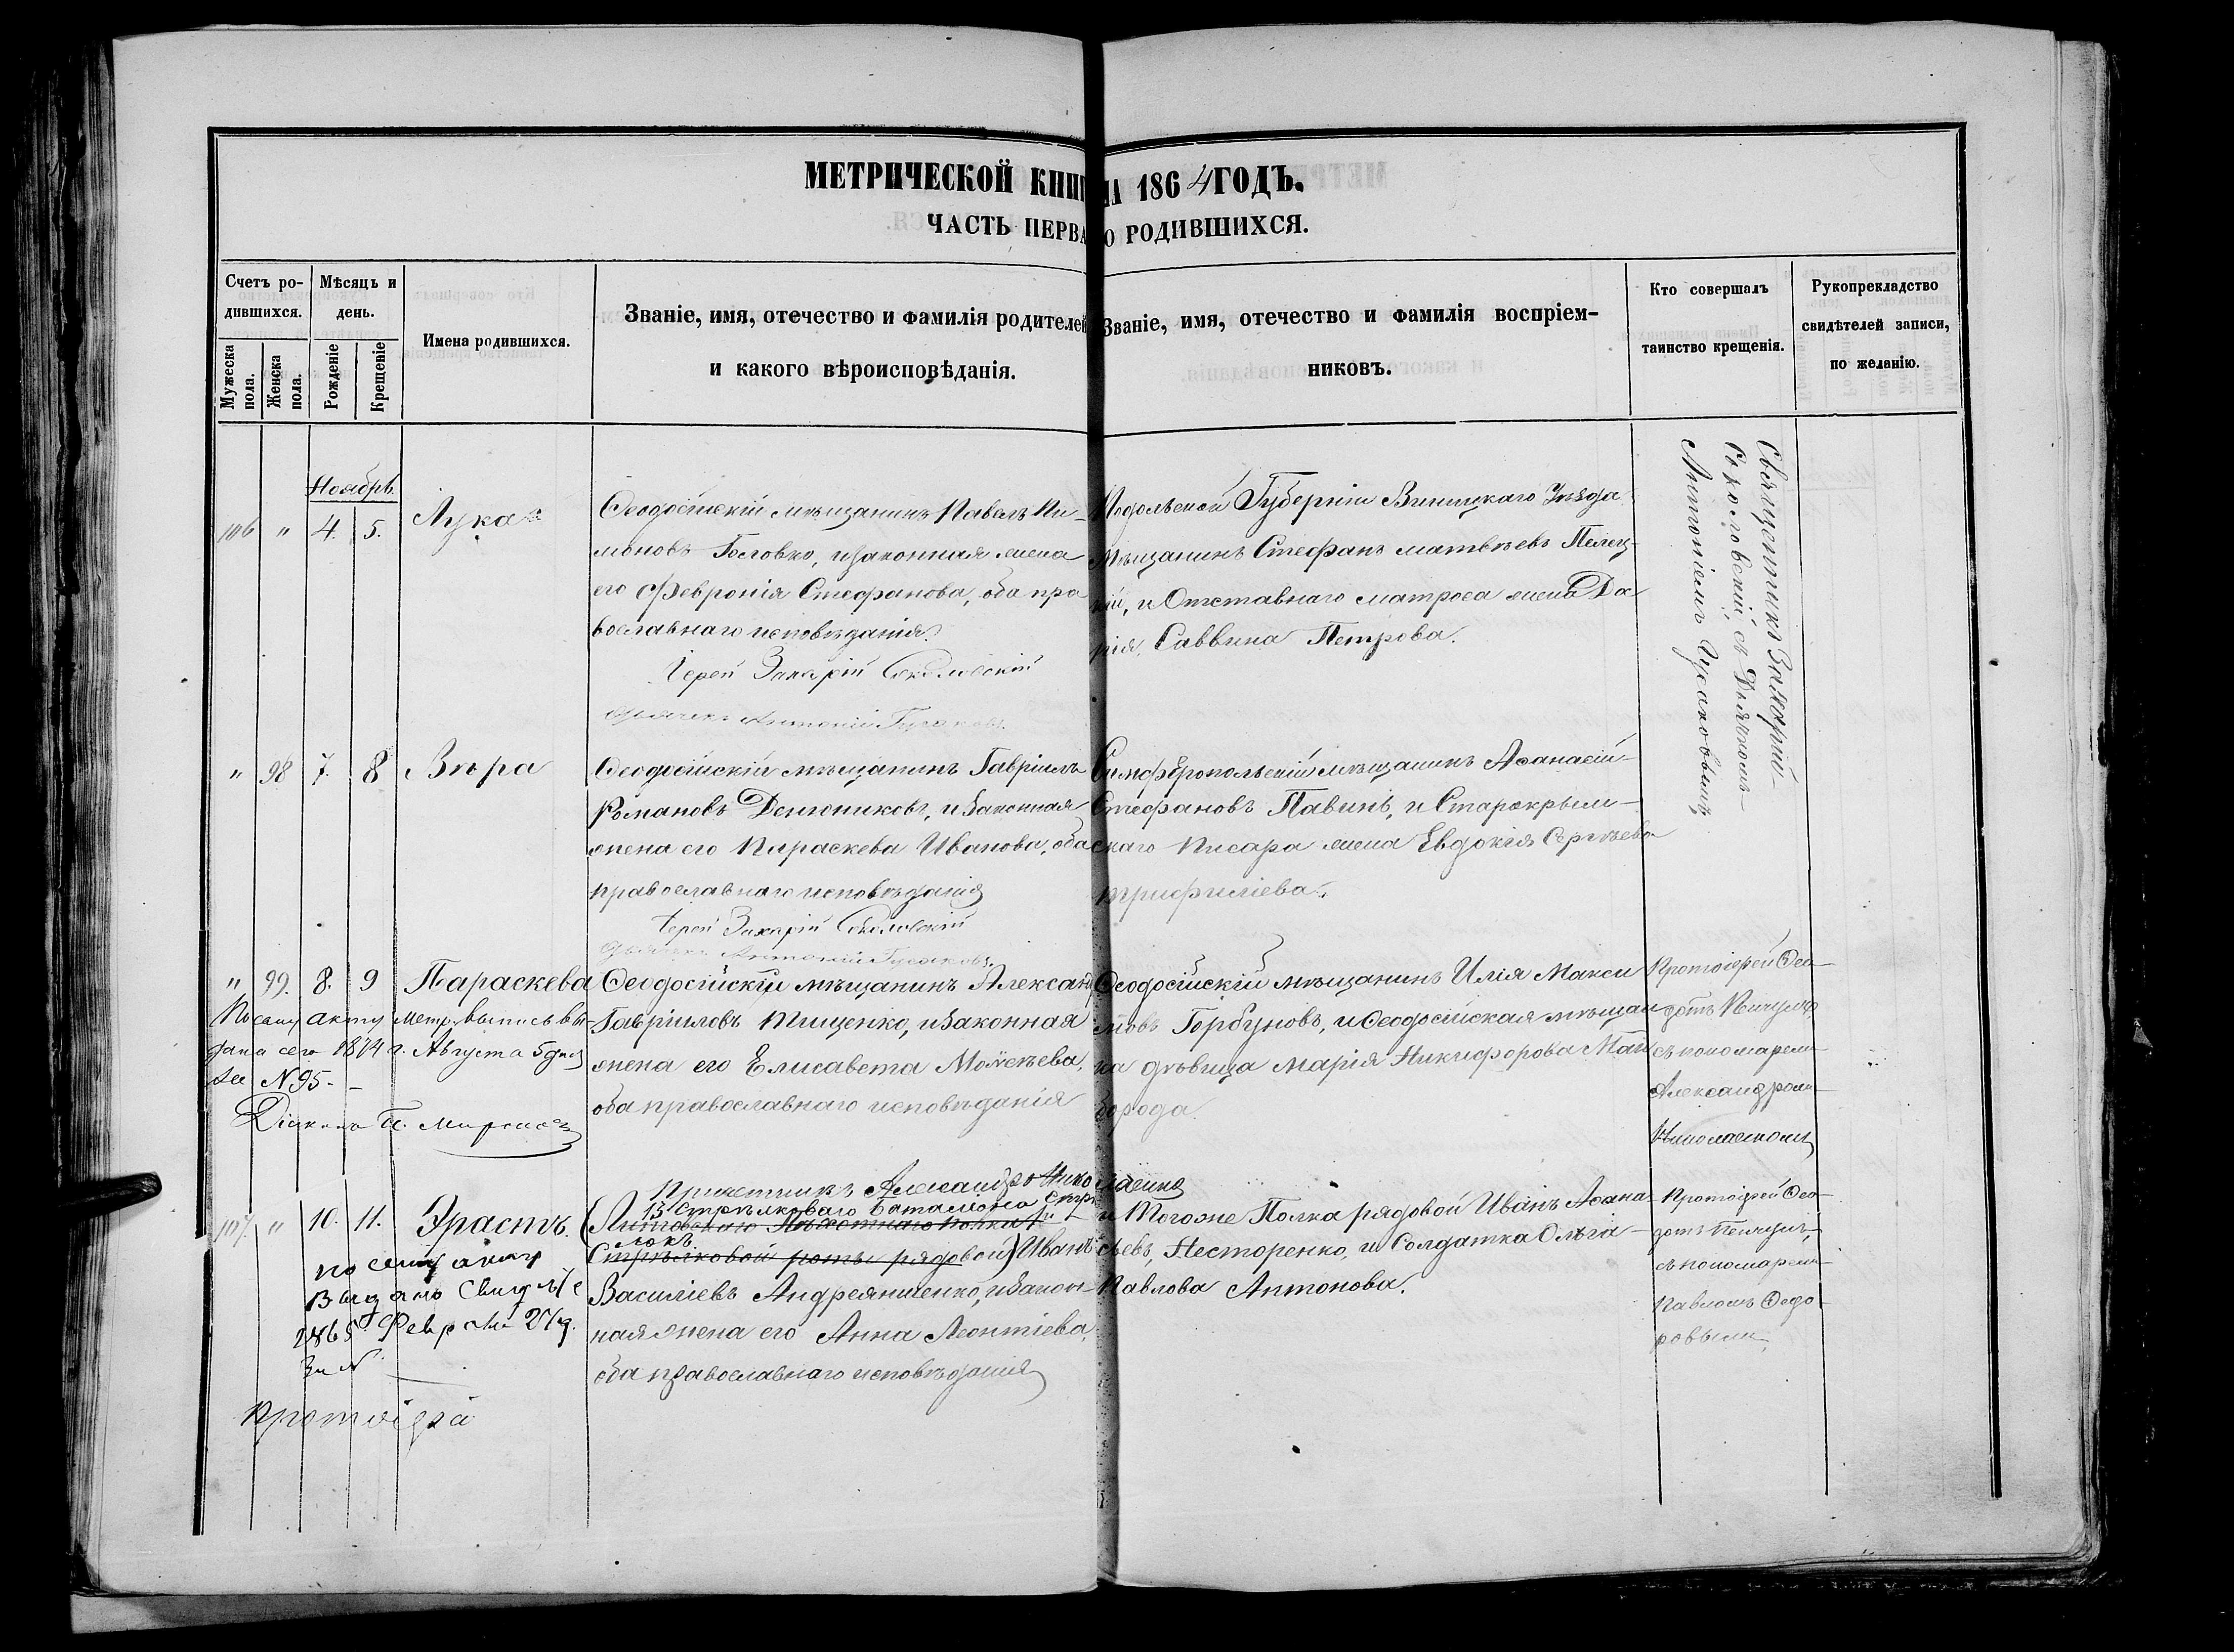 МЕТРИЧЕСКОЙ КНИГ НА 1864 ГОДЪ.
ЧАСТЬ ПЕРВА О РОДИВШИХСЯ.
Счетъ ро-
дившихся.
Мѣсяцъ и
день.
Мужеска
пола.
Женска
пола.
Рожденіе
Крещеніе
Имена родившихся.
Званіе, имя, отечество и фамилія родителей
и какого вѣроисповѣданія.
Званіе, имя, отечество и фамилія воспріем-
никовъ.
Кто совершалъ
таинство крещенія.
Рукоприкладство
свидѣтелей записи,
по желанію.
Ноябрь
106 " 4. 5. Лука
Ѳеодосійскій мѣщанинъ Павелъ Пи-
моновъ Головко, и законная жена
его Февронія Стефанова, оба пра
вославнаго исповѣданія.
Іерей Захарій Соколовскій
Дьячекъ Антоній Гусаковъ.
Подольской Губерніи Виницкаго Уѣзда
Мѣщанинъ Стефанъ Матвѣевъ Пелец-
кій, и Отставнаго матроса жена Да
рія Саввина Петрова.
Священникъ Захарій
Соколовскій, съ Дьячкомъ
Антоніемъ Гусаковымъ
" 98 7. 8 Вѣра
Ѳеодосійскій мѣщанинъ Гавріилъ
Романовъ Денежниковъ, и законная
жена его Параскева Иванова, оба
православнаго исповѣданія
Іерей Захарій Соколовскій
Дьячекъ Антоній Гусаковъ.
Симферопольскій мѣщанинъ Аѳанасій
Стефановъ Павинъ, и Старокрым-
скаго Писаря жена Евдокія Сергѣева
Трифиліева.
" 99. 8. 9 Параскева
По сему акту метр. выпись вы-
дана сего 1874 г. Августа 5 дня
за N 95.
Ѳеодосійскій мѣщанинъ Александръ
Гавріиловъ Тищенко, и законная
жена его Елисавета Моисеева,
оба православнаго исповѣданія
Причетникъ Александръ Николаенко
Ѳеодосійскій мѣщанинъ Илія Макси
мовъ Горбуновъ, и Ѳеодосійская мѣщан
ка дѣвица Марія Никифорова Май
борода.
Протоіерей Ѳео-
дотъ
съ пономаремъ
Александромъ
107. " 10. 11. Эрастъ.
по сему акту
Выдано Свидѣт
1865 Февраля 27 д.
За N
протоіерей
13 Стрѣлковаго баталіона Стрѣ
(Литовскаго Пѣхотнаго полка
локъ
Стрѣлковой роты рядовой) Иванъ
Василіевъ Андреяшенко, и закон-
ная жена его Анна Леонтіева,
оба православнаго исповѣданія
и Тогоже Полка рядовой Иванъ Аѳана
сьевъ, Несторенко, и Солдатка Ольга
Павлова Антонова.
Протоіерей Ѳео-
дотъ
съ пономаремъ
Павломъ Ѳедо
ровымъ